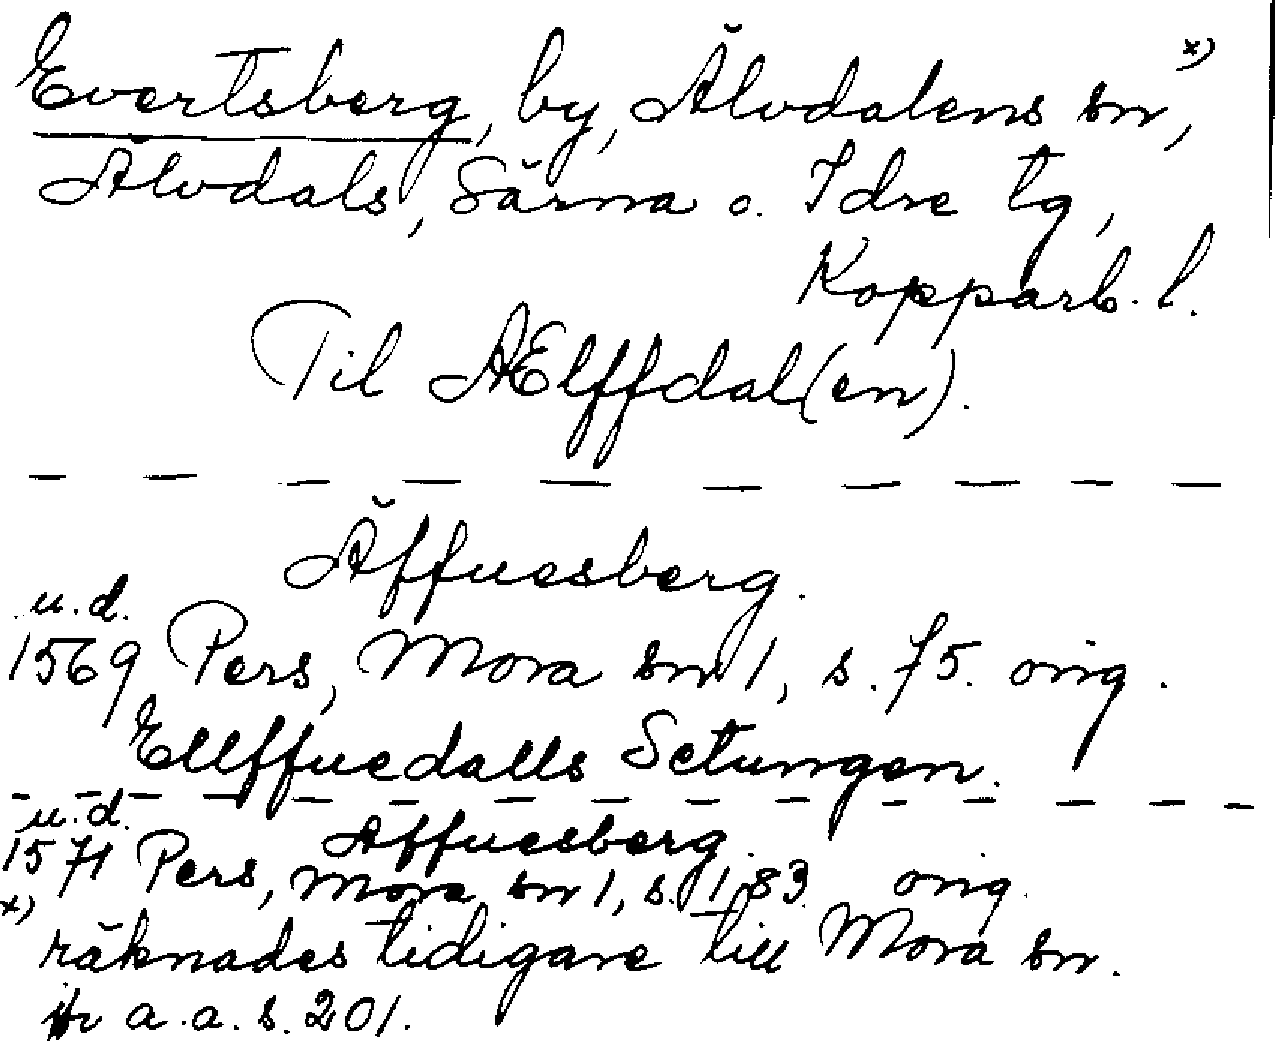 Evertsberg, by, Älvdalens sn, x)
Älvdals, Särna o. Idre tg,
Kopparb. l.
Til ÆElffdal(en).
Äffuesberg.
u.d.
1569 Pers, Mora sn 1, s. 75. orig.
Ellffuedalls Setungen.
u.d. Affuesberg.
1571 Pers, Mora sn 1, s. 183 orig.
x) räknades tidigare till Mora sn.
a.a. s. 201.